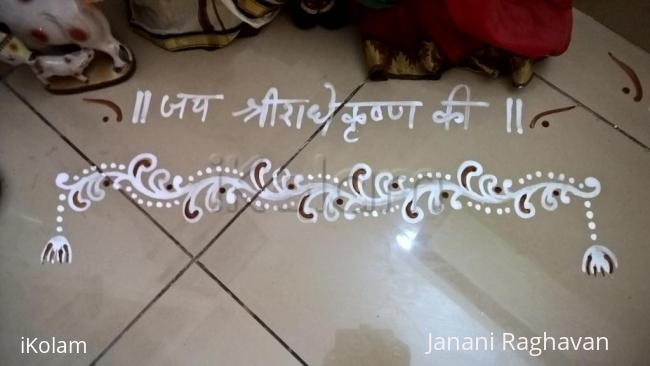 ॥ जय श्रीराधेकृष्ण की ॥
iKolam
iKolam
Janani Raghavan